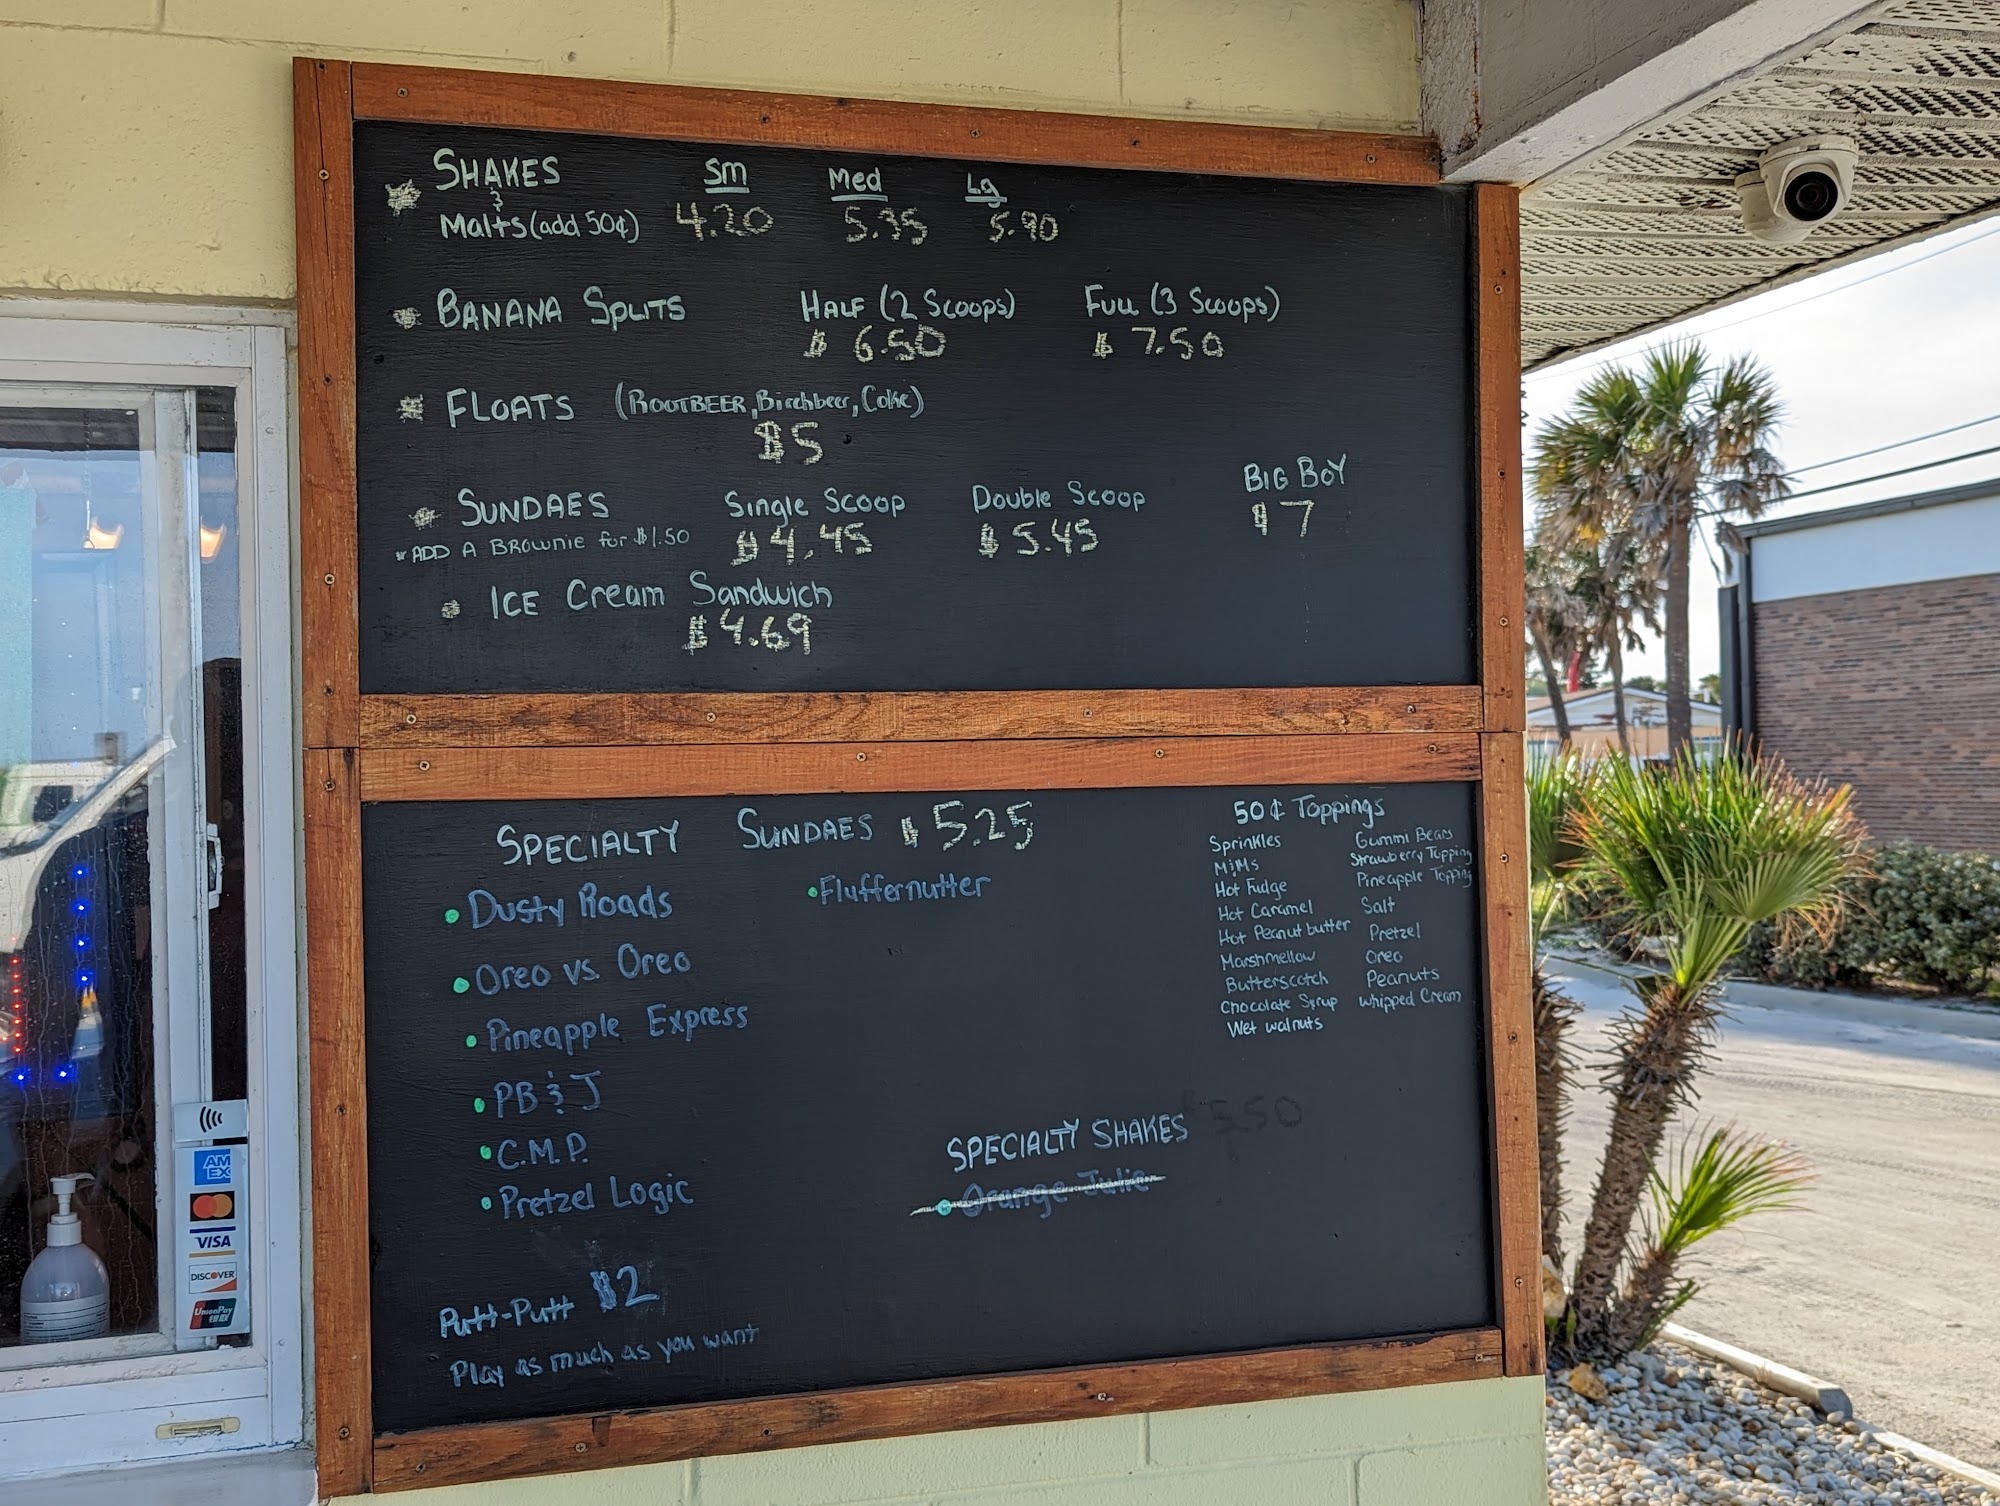 SHAKES Sm Med Lg
&
Malts (add 50¢) 4.20 5.35 5.90
BANANA SPLITS HALF (2 Scoops) FULL (3 Scoops)
$ 6.50 $ 7.50
FLOATS (ROOTBEER, Birchbeer, Coke)
$5
SUNDAES Single Scoop Double Scoop BIG BOY
* ADD A BROWNIE for $1.50 $4.45 $5.45 $7
ICE Cream Sandwich
$4.69
SPECIALTY SUNDAES $5.25
• Dusty Roads
• Oreo vs. Oreo
• Pineapple Express
• PB & J
• C.M.P.
• Pretzel Logic
• Fluffernutter
50¢ Toppings
Sprinkles
M&Ms
Hot Fudge
Hot Caramel
Hot Peanut butter
Marshmellow
Butterscotch
Chocolate Syrup
Wet walnuts
Gummi Bears
Strawberry Topping
Pineapple Topping
Salt
Pretzel
Oreo
Peanuts
whipped Cream
SPECIALTY SHAKES 5.50
• Orange Julie
Putt-Putt $2
Play as much as you want
AM
EX
VISA
DISCOVER
UnionPay